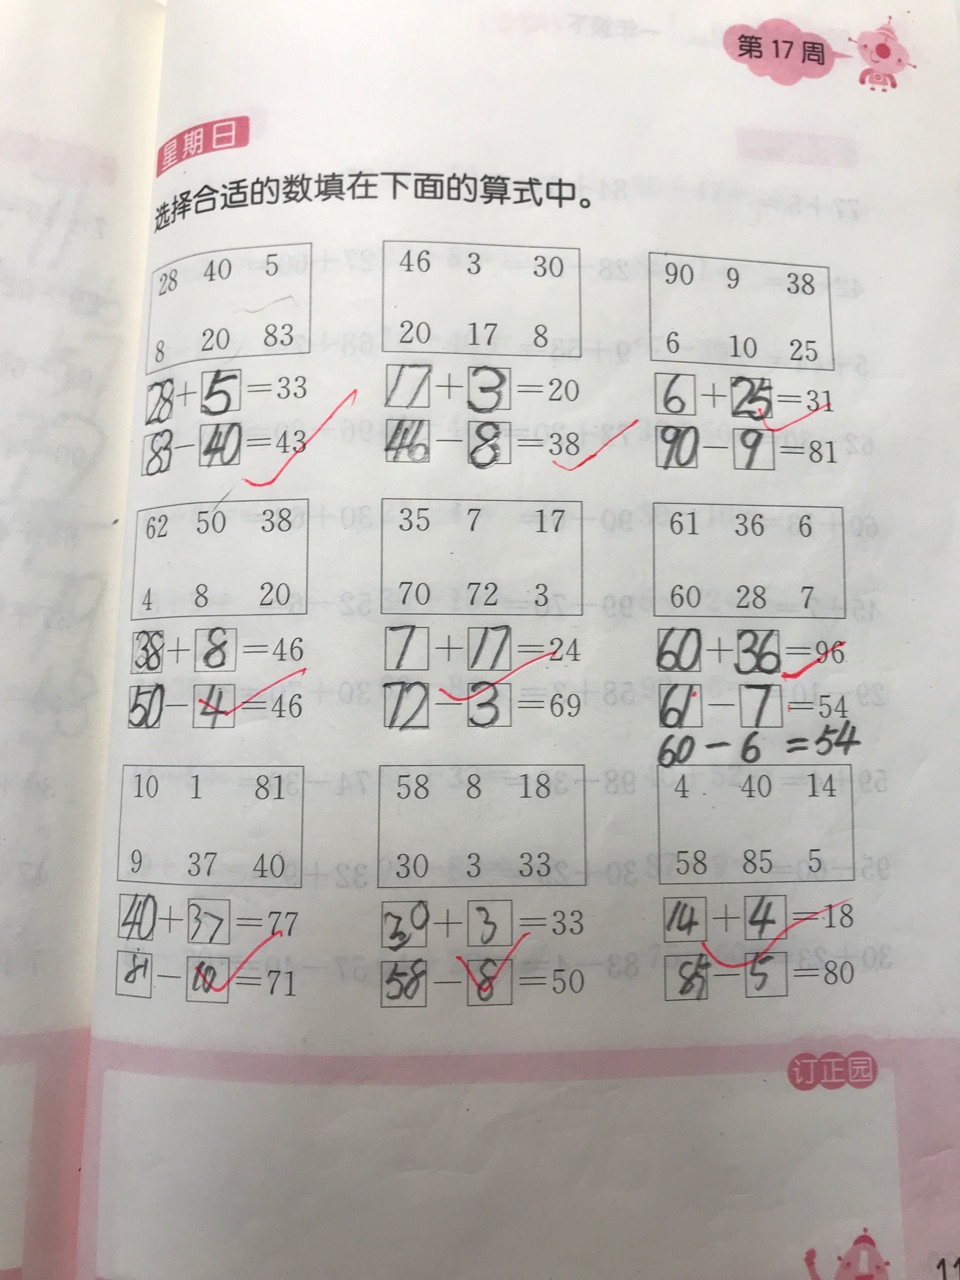 第17周
星期日
选择合适的数填在下面的算式中。
28 40 5
8 20 83
28+5=33
83-40=43
46 3 30
20 17 8
17+3=20
46-8=38
90 9 38
6 10 25
6+25=31
90-9=81
62 50 38
4 8 20
38+8=46
50-4=46
35 7 17
70 72 3
7+17=24
72-3=69
61 36 6
60 28 7
60+36=96
61-7=54
60-6=54
10 1 81
9 37 40
40+37=77
81-10=71
58 8 18
30 3 33
30+3=33
58-8=50
4 40 14
58 85 5
14+4=18
85-5=80
订正园